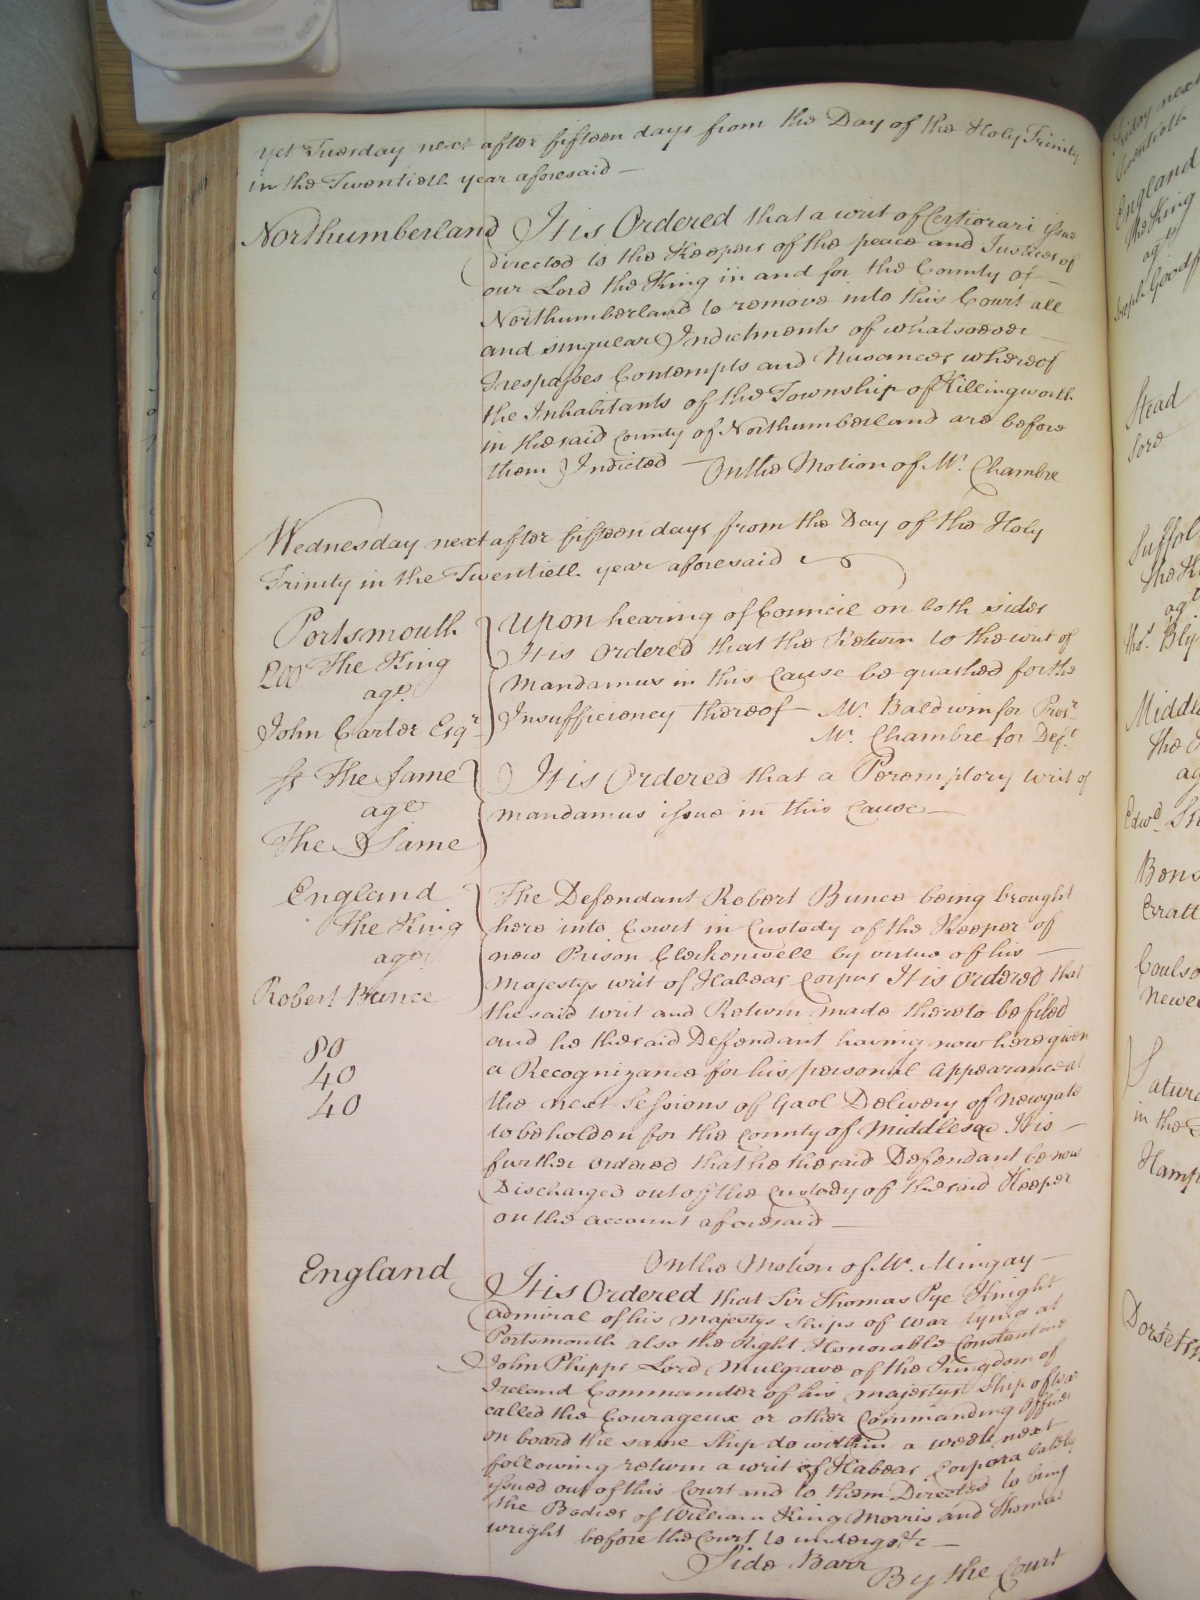 yet Tuesday next after fifteen days from the Day of the Holy Trinity
in the Twentieth year aforesaid —
Northumberland It is Ordered that a writ of Certiorari issue
directed to the Keepers of the peace and Justices of
our Lord the King in and for the County of —
Northumberland to remove into this Court all
and singular Indictments of whatsoever —
Trespasses Contempts and Nusances whereof
the Inhabitants of the Township of Killingworth
in the said County of Northumberland are before
them Indicted — On the Motion of Mr. Chambre
Wednesday next after fifteen days from the Day of the Holy
Trinity in the Twentieth year aforesaid
Portsmouth
The King
agt
John Carter Esqr
Upon hearing of Council on both sides
It is Ordered that the Return to the writ of
Mandamus in this Cause be quashed for the
Insufficiency thereof — Mr. Baldwin for Prosr
Mr. Chambre for Deft
The Same
agt
The Same
It is Ordered that a Peremptory writ of
mandamus issue in this Cause —
England
The King
agt
Robert Bunce
80
40
40
The Defendant Robert Bunce being brought
here into Court in Custody of the Keeper of
new Prison Clerkenwell by virtue of his —
Majestys writ of Habeas Corpus It is Ordered that
the said writ and Return made thereto be filed
and he the said Defendant having now here given
a Recognizance for his personal Appearance at
the next Sessions of Gaol Delivery of Newgate
to be holden for the County of Middlesex It is —
further Ordered that he the said Defendant be now
Discharged out of the Custody of the said Keeper
on the account aforesaid —
On the Motion of Mr. Mingay —
England It is Ordered that Sir Thomas Pye Knight
Admiral of his Majestys Ships of War lying at
Portsmouth also the Right Honorable Constantine
John Phipps Lord Mulgrave of the Kingdom of
Ireland Commander of his majestys Ship of War
called the Courageux or other Commanding Officer
on board the same Ship do within a week next
following return a writ of Habeas Corpora lately
issued out of this Court and to them Directed to bring
the Bodies of William King Morris and Thomas
wright before the Court to undergo &c —
Side Barr
By the Court
Friday next
Twentieth
England
The King
agt
Joseph
Stead
Suffol
the K
agt
Thos. Bly
Middle
The
ag
Edwd.
Bens
Coulso
Newe
Satur
in the
Hamp
Dorset